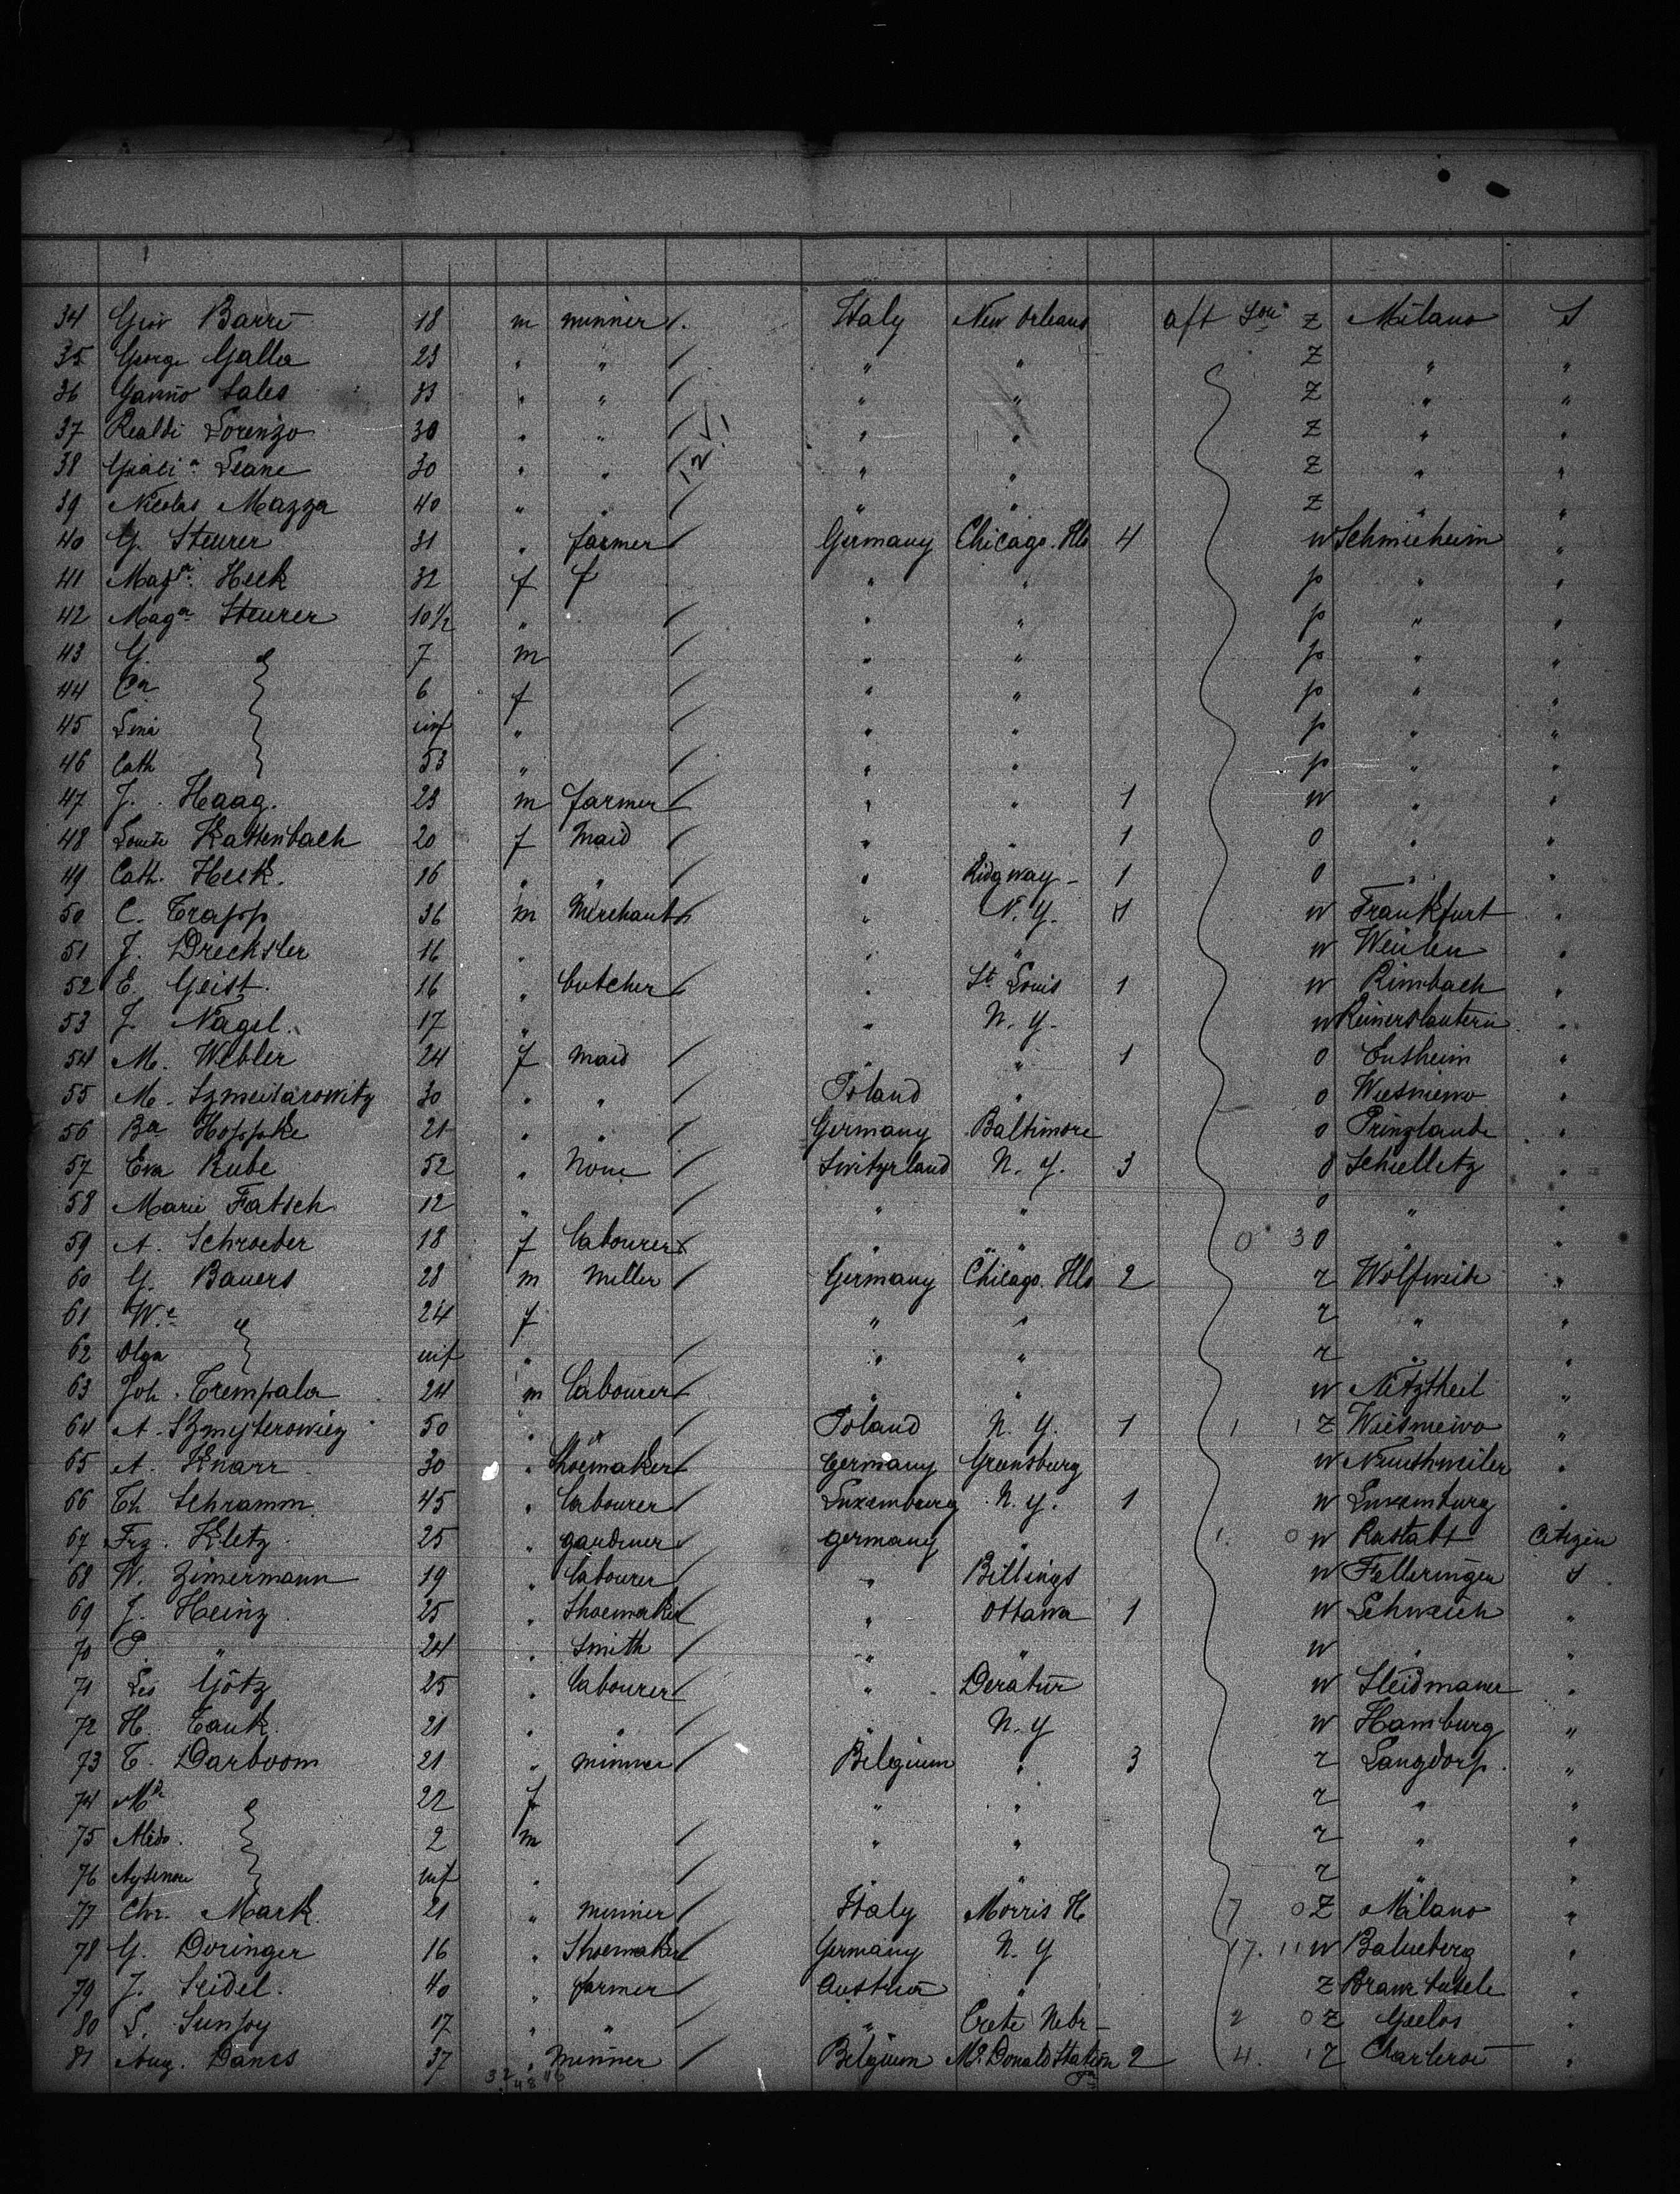 34 Giov Barré 18 m minner Italy New Orleans aft z Milano S
35 George Galla 23 " " " " Z " "
36 Sales 33 " " " " Z " "
37 Realdi Lorenzo 30 " " " " Z " "
38 Leane 30 " " " " Z " "
39 Nicolas Mazza 40 " " " " Z " "
40 G. Steurer 31 " farmer Germany Chicago. Ills 4 W Schmieheim "
41 Magna Heck 32 f f " " p " "
42 Maga Steurer 10½ " " " p " "
43 G. 7 m " " p " "
44 Ca 6 f " " p " "
45 Lina inf " " " p " "
46 Cath 53 " " " p " "
47 J. Haag. 23 m farmer " " 1 W " "
48 Louise Kattenbach 20 f Maid " " 1 0 " "
49 Cath. Heck. 16 " " " Ridgway 1 0 " "
50 C. Trapp 36 m Merchant " N. Y. 1 W Frankfurt "
51 J. Drechsler 16 " " " W "
52 E. Geist. 16 " butcher " St. Louis 1 W Rimbach "
53 J. Nagel. 17 " " N. Y. W "
54 M. Webler 24 f maid " " 1 0 Ensheim "
55 M. 30 " " Poland " 0 Wiesniewo "
56 Ba Hoppke 21 " " Germany Baltimore 0 "
57 Eva Kube 52 " None Switzerland N. Y. 3 0 Schielletz "
58 Marie Fatsch 12 " " " 0 " "
59 A. Schroeder 18 f labourer " " 0 3 0 " "
60 G. Bauers 28 m Miller Germany Chicago. Ills 2 z "
61 We " 24 f " " z " "
62 Olga inf " " " z " "
63 Joh. Trempala 24 m labourer " " W "
64 A. 50 " " Poland N. Y. 1 1 1 Z "
65 A. Knarr 30 " Shoemaker Germany Greensburg W "
66 Th Schramm. 45 " labourer Luxemburg N. Y. 1 W Luxemburg "
67 Frz. Kletz 25 " gardner germany " 1. 0 W Rastatt Citizen
68 W. Zimermann 19 " labourer " Billings W Felleringen S
69 J. Heinz 25 " Shoemaker " Ottawa 1 W Schweich "
70 P. " 24 " Smith " " W " "
71 Götz 25 " labourer " W "
72 H. Tauk 21 " " " N. Y W Hamburg "
73 T. Darboom 21 " minner Belgium " 3 z Langdorp. "
74 Ma 22 f " " z " "
75 2 m " " z " "
76 inf " " " z " "
77 Chr. Mark. 21 " minner Italy Morris 7 0 Z Milano "
78 G. Doringer 16 " Shoemaker Germany N. Y 17. 11 W "
79 J. Seidel. 40 " farmer Austria " Z "
80 L. 17 " " " Crete Nebr 2 0 Z "
81 Aug. Danes 37 " Minner Belgium Mc. Donald Station 2 4. 1 z Charleroi "
32 48 116